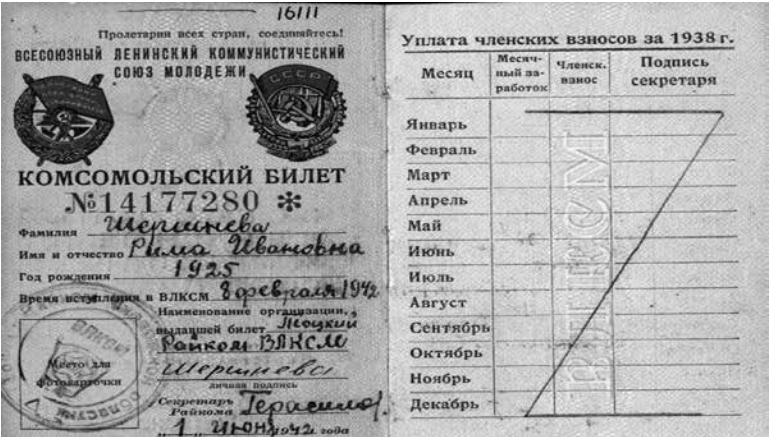 16111
Пролетарии всех стран, соединяйтесь!
ВСЕСОЮЗНЫЙ ЛЕНИНСКИЙ КОММУНИСТИЧЕСКИЙ
СОЮЗ МОЛОДЕЖИ
СССР
КОМСОМОЛЬСКИЙ БИЛЕТ
№14177280 *
Фамилия Шершнева
Имя и отчество Рима Ивановна
Год рождения 1925
Время вступления в ВЛКСМ 8 февраля 1942
Наименование организации,
выдавшей билет Троцкий
Райком ВЛКСМ
Место для
фотокарточки
Шершнева
личная подпись
Секретарь
Райкома Герасимов
"1" июня 1942 года
ВЛКСМ
Уплата членских взносов за 1938 г.
Месяц
Месяч-
ный за-
работок
Членск.
взнос
Подпись
секретаря
Январь
Февраль
Март
Апрель
Май
Июнь
Июль
Август
Сентябрь
Октябрь
Ноябрь
Декабрь
ВЛКСМ